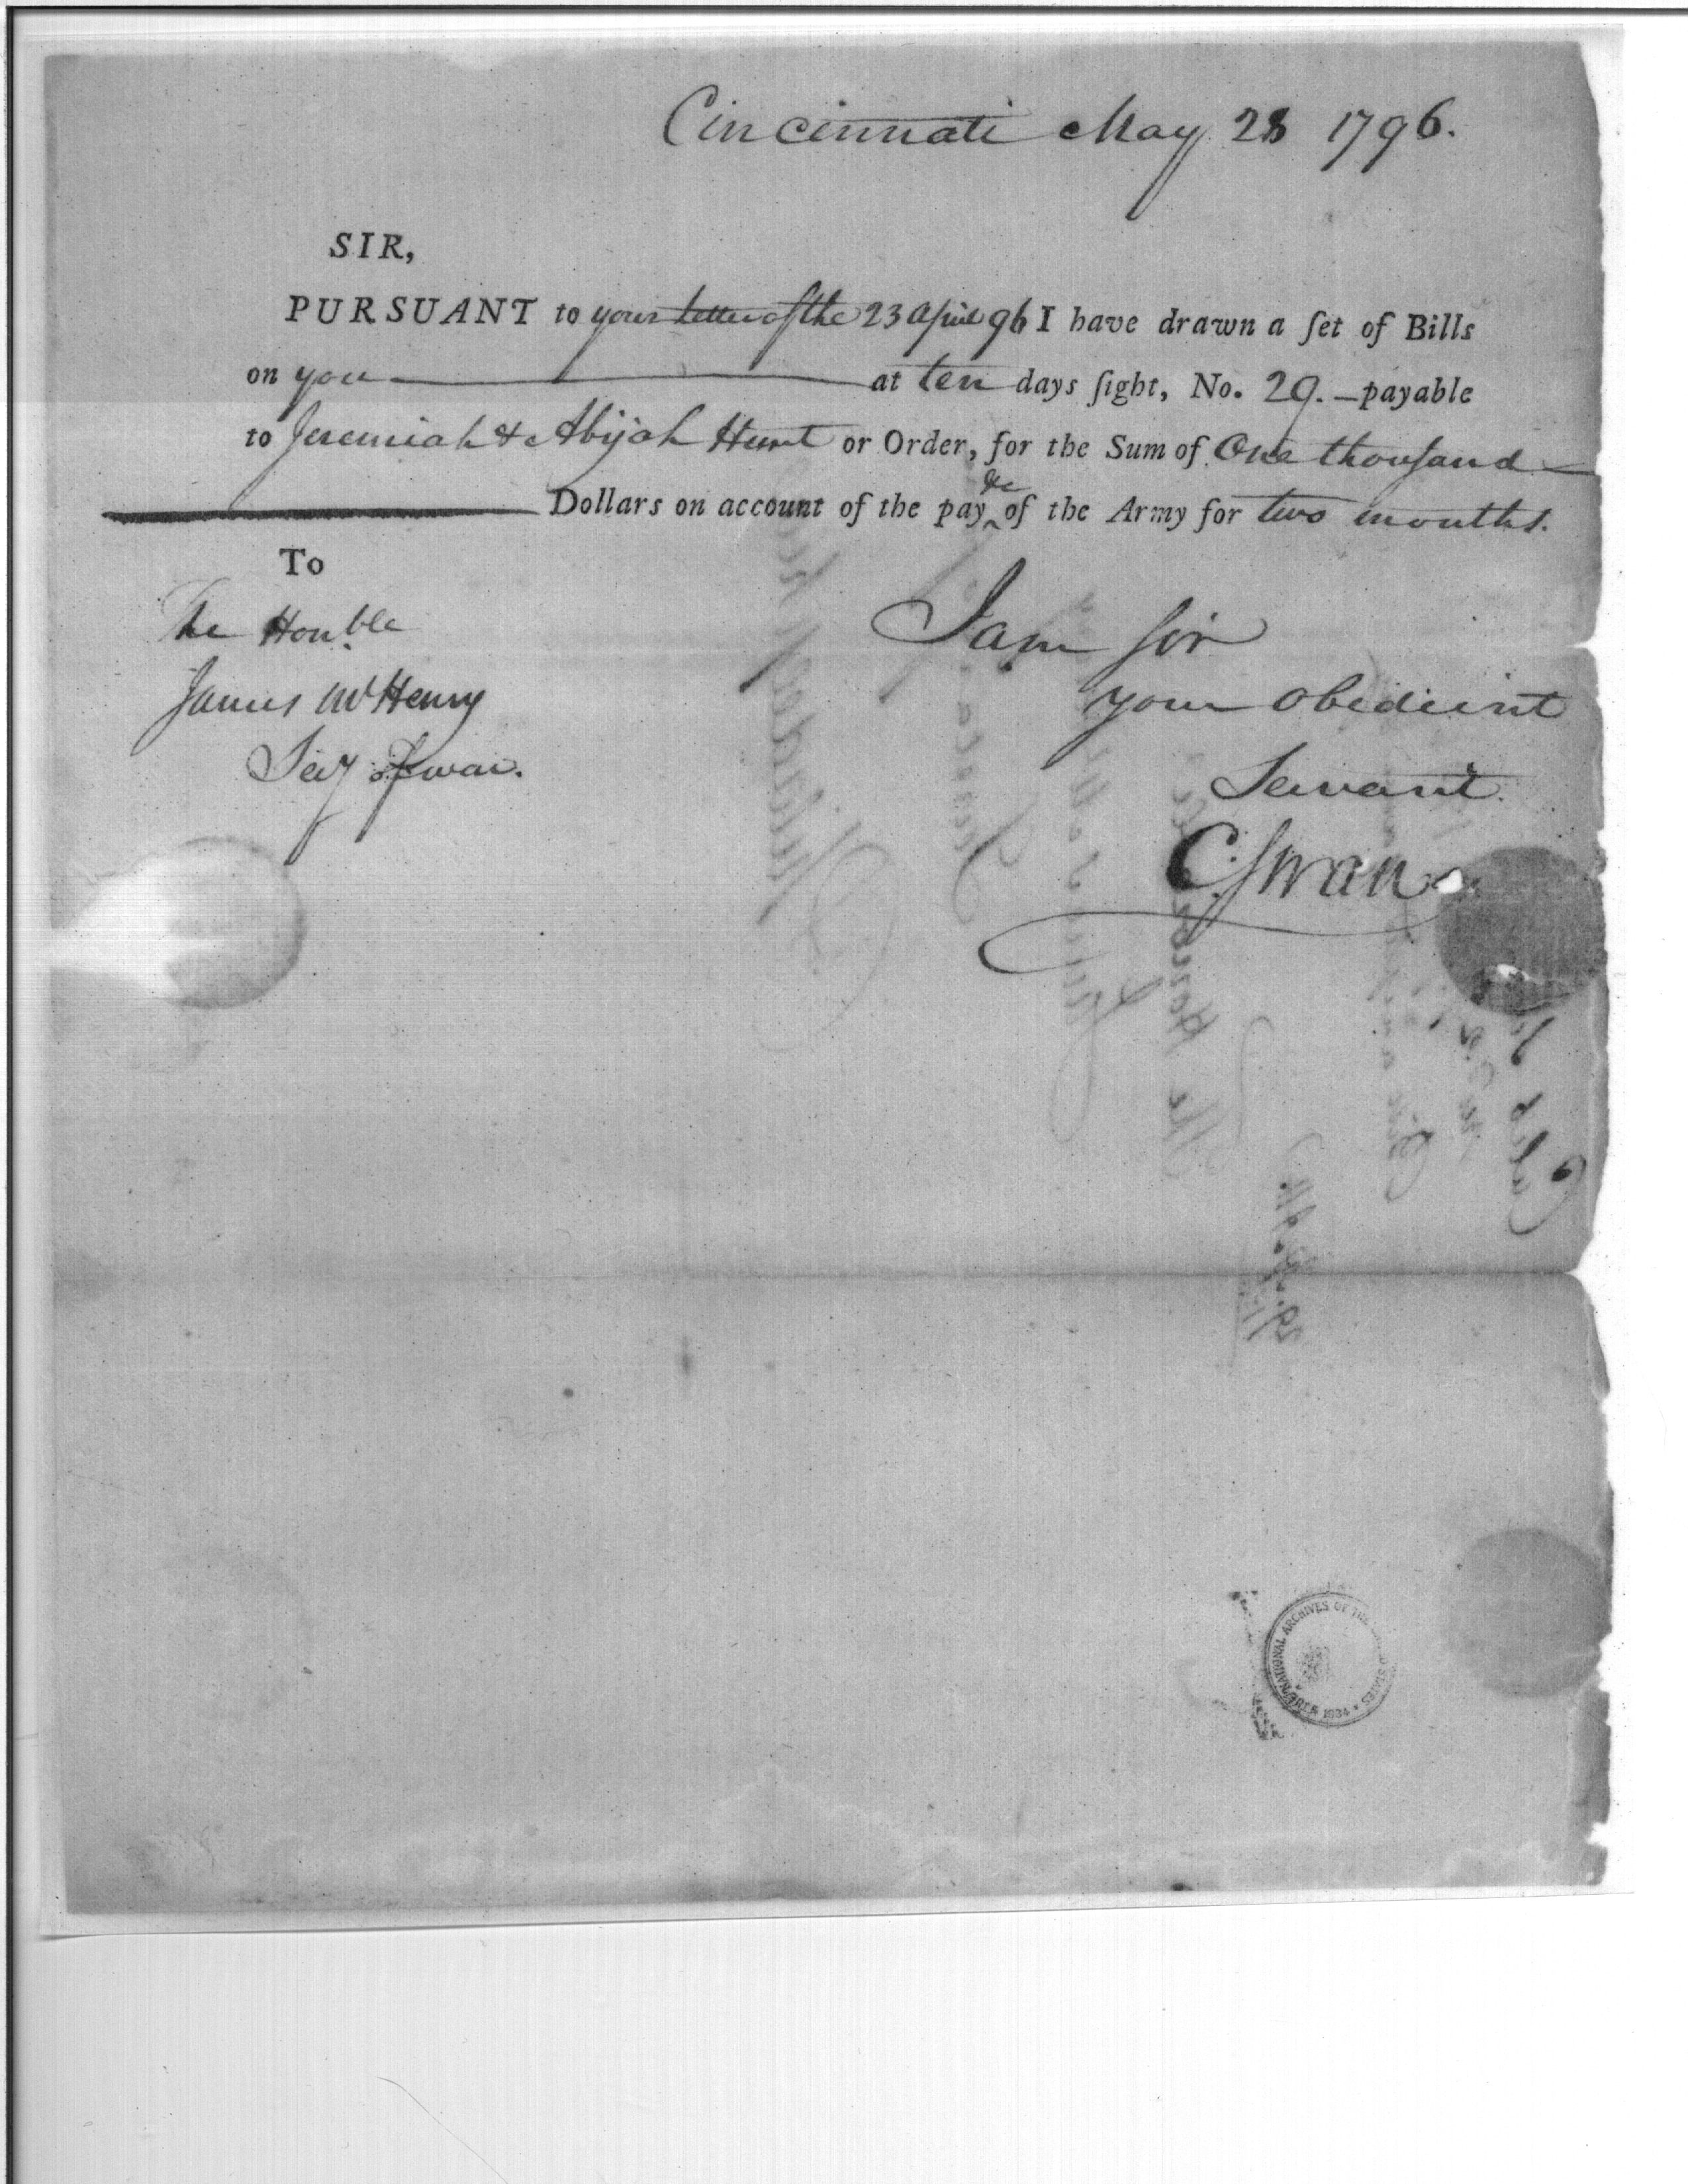 Cincinnati May 28 1796.
SIR,
PURSUANT to your Letter of the 23 April 96 I have drawn a ſet of Bills
on you at ten days ſight, No. 29. — payable
to Jeremiah & Abijah Hunt or Order, for the Sum of One thouſand
Dollars on account of the pay &c of the Army for two months.
To
The Honble
James McHenry
Secy of war.
I am ſir
your obedient
Servant.
C. Swan
NATIONAL ARCHIVES OF THE STATES 1934